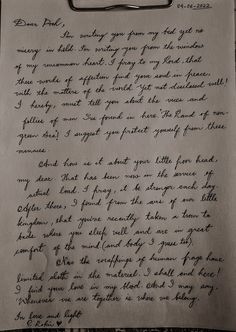 04-06-2022
Dear Poet,
I'm writing you from my bed yet no
misery is held. I'm writing you from the window
of my uncommon heart. I pray to my Lord that
these words of affection find your soul in peace,
with the matters of the world yet not disclosed well!
I hereby, must tell you about the vices and
follies of men I've found in here 'The Land of non-
green Sea'! I suggest you protect yourself from these
menaces.
And how is it about your little poor head,
my dear. That has been now in the service of
actual Lord. I pray, it be stronger each day.
After those, I found from the airs of our little
kingdom, that you've recently taken a turn to
bids where you sleep well and are in great
comfort of the mind (and body I guess too).
Now the wrappings of human frags have
limited sloth in the material. I shall end here!
I find your love in my blood. And I may say,
'Whenever we are together is where we belong.'
In love and light
C. Robin ♥